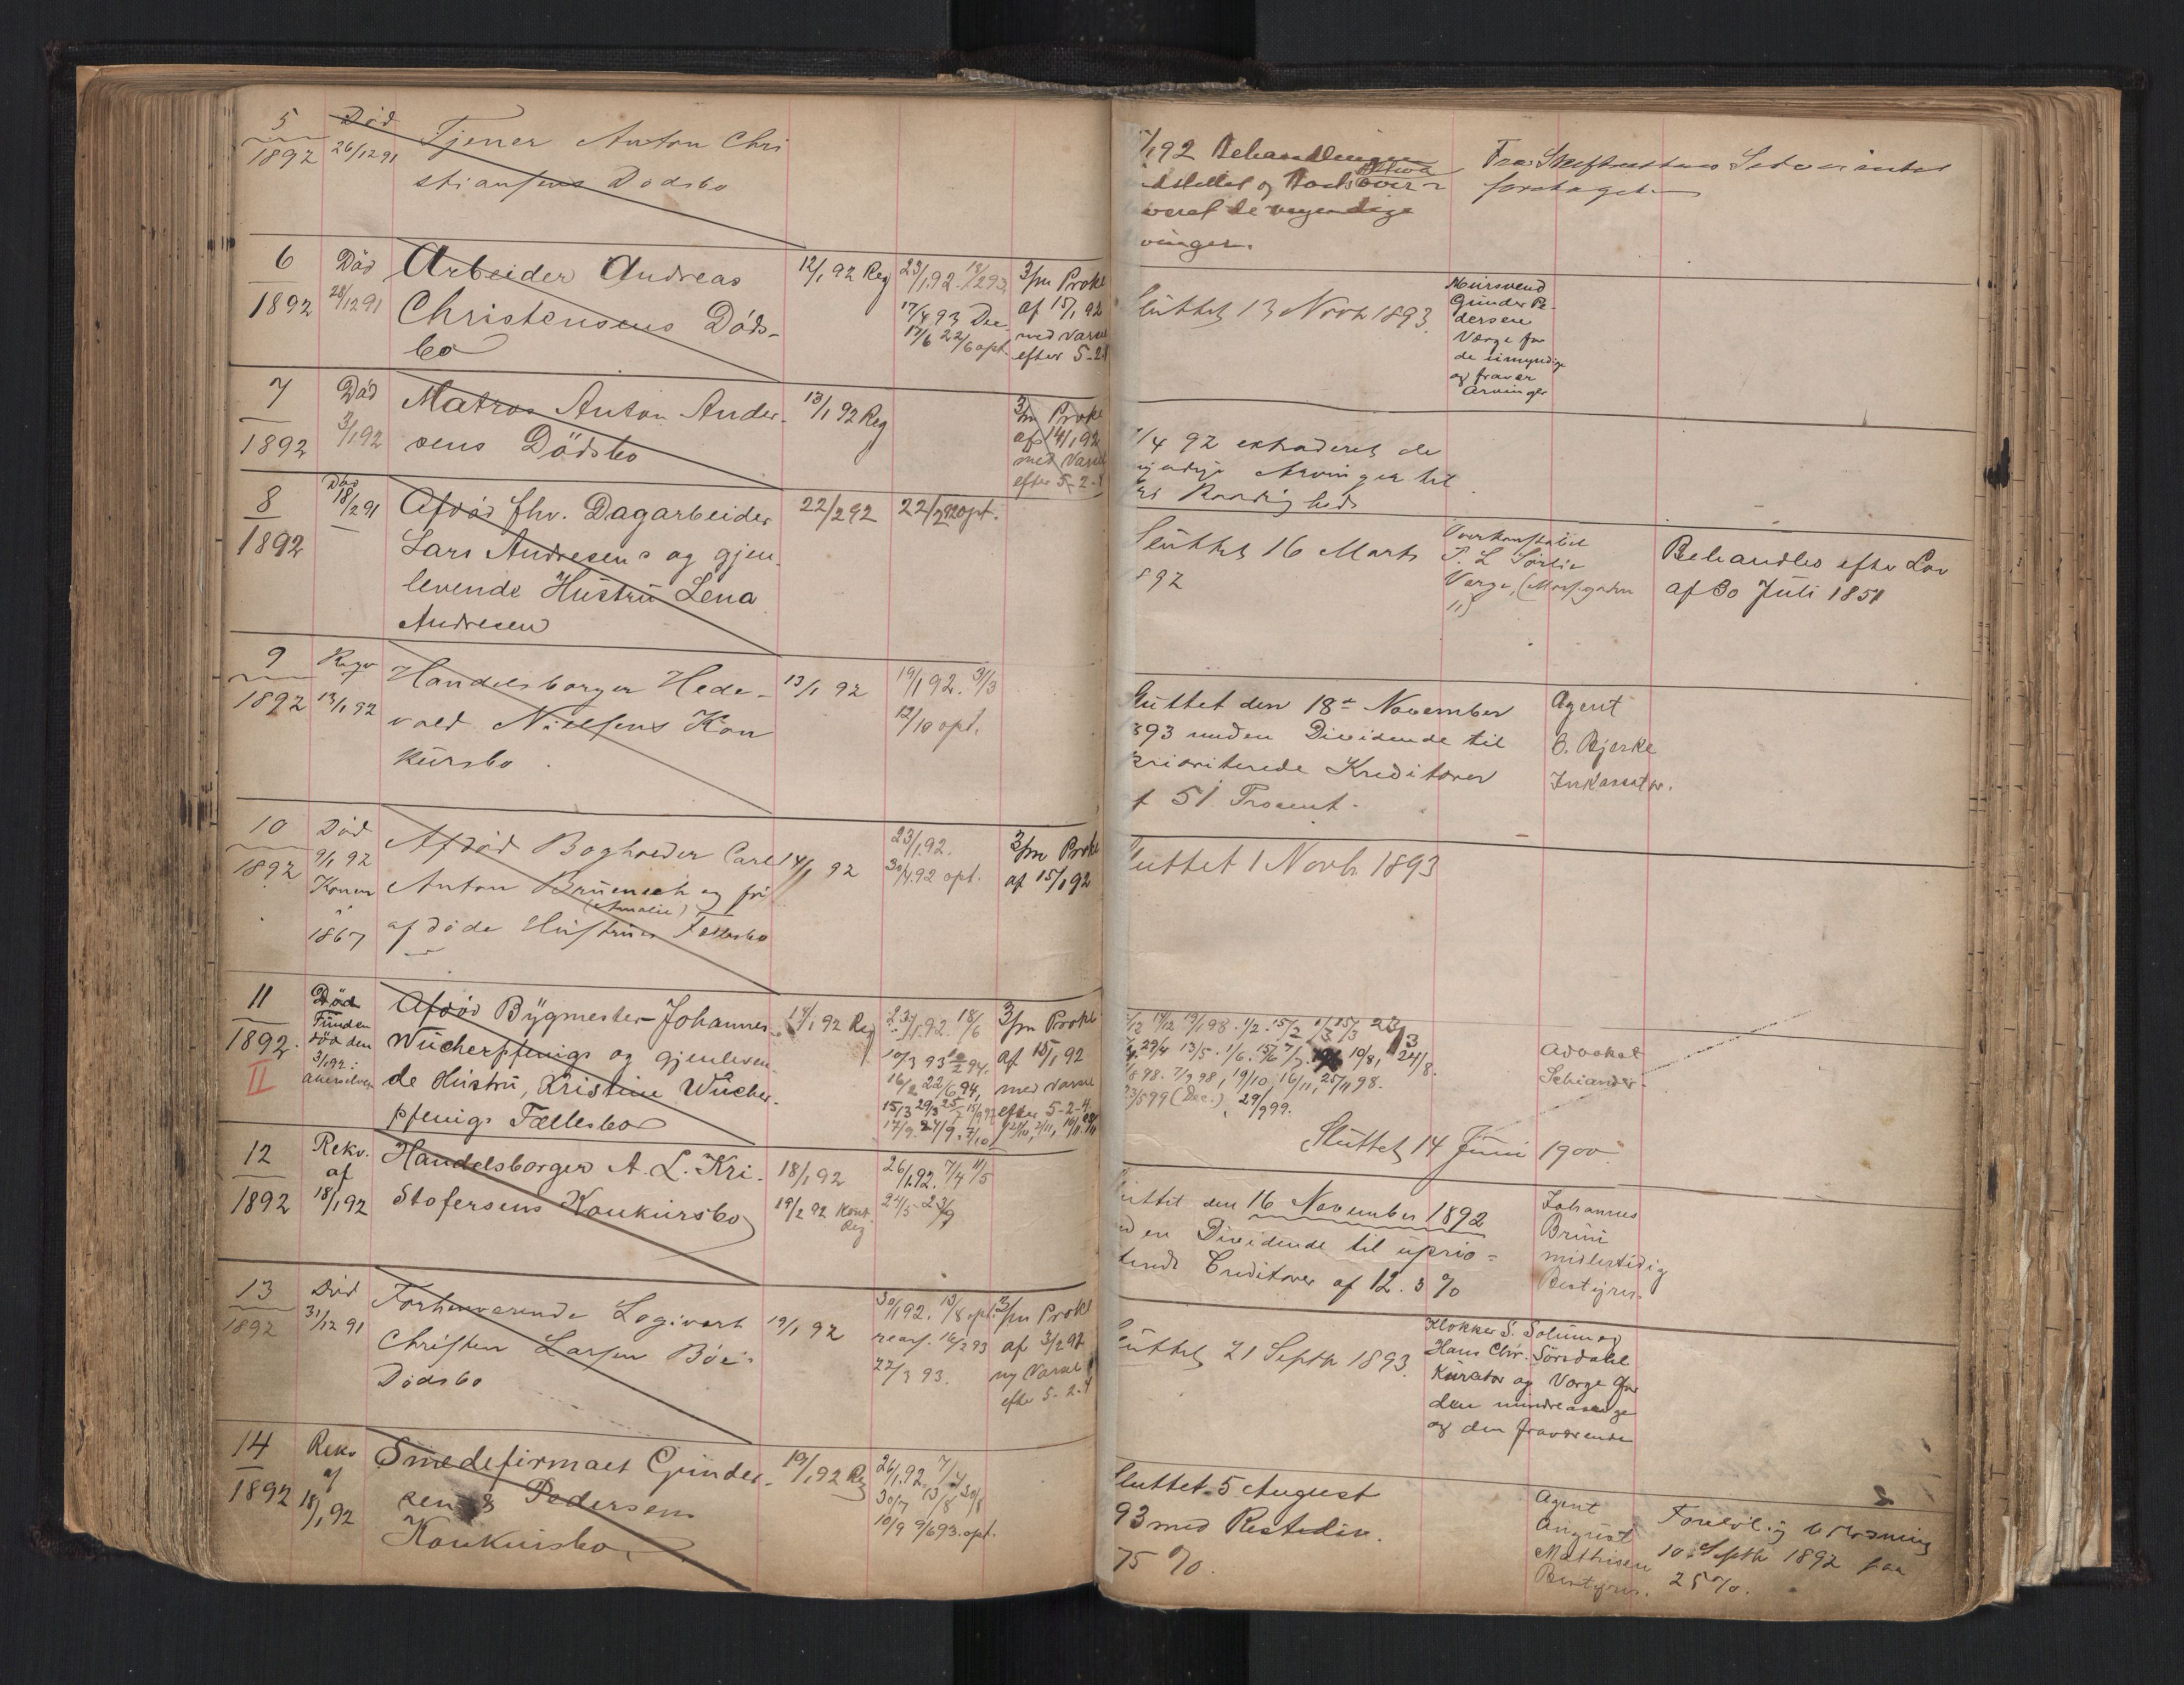 5
1892
Död
26/12 91
Tjener Anton Chri
stiansens Dødsbo
/1 92 Behandlingen
dstillet og Boets
vinger.
Fra Skifterettens Side intet
foretaget.
6
1892
Död
28/12 91
Arbeider Andreas
Christensens Døds-
bo
12/1 92 Reg
23/1 92.
17/4 93 Dec.
17/6 22/6 opt.
3/m Prokl
af 15/1 92
med Varsel
efter 5-2-4
Sluttet 13 Novbr 1893.
Mursvend
Gunder Pe-
dersen
Værge for
de umyndige
og fravær
Arvinger
7
1892
Død
3/1 92
Matros Anton Ander-
sens Dödsbo
13/1 92 Reg
3/m Prokl
af 14/1 92
med Varsel
efter 5-2-4
/4 92 extraderet de
myndige Arvinger til
Raadighed
8
1892
Död
18/2 91
Afdöd fhv. Dagarbeider
Lars Andresens og gjen-
levende Hustru Lena
Andresen
22/2 92
22/2 92 opt.
Sluttet 16 Marts
892
Overkonstabel
P. L Sörlie
Værge,
11)
Behandles efter Lov
af 30 Juli 1851
9
1892
Rekv
af
13/1 92
Handelsborger Hede-
vald Nielsens Kon
kursbo.
13/1 92
19/1 92. 31/3
12/10 opt.
Sluttet den 18de November
893 uden Dividende til
prioriterede Kreditorer
f 51 Procent.
Agent
B. Bjerke
Inkassator.
10
1892
Död
9/1 92
Konen
i
1867
Afdöd Bogholder Carl
Anton Bruenech og før
(Amalie)
afdöde Hustrues Fællesbo
14/1 92
23/1 92.
30/4 92 opt.
3/m Prokl
af 15/1 92
Sluttet 1 Novb. 1893
11
1892.
II
Död
Funden
död den
3/1 92 i
Akerselven
Afdöd Bygmester Johannes
Wücherpfenigs og gjenleven-
de Hustru, Kristine Wücher-
pfenigs Fællesbo
14/1 92 Reg
23/1 92. 18/6
10/3 93
16/2 22/6 94,
15/3 29/3
17/9. 24/9. 7/10
3/m Prokl
af 15/1 92
med Varsel
efter 5-2-4
/12 14/12 19/1 98. 1/2. 15/2 1/3 15/3 23/3
29/4 13/5. 1/6. 15/6 10/8, 24/8.
/8 98. 7/9 98, 19/10, 16/11, 25/11 98.
23/5 99 (Dec.) 29/9 99.
Sluttet 14 Juni 1900
Advokat
Schiander
12
1892
Rekv.
af
18/1 92
Handelsborger A. L. Kri-
stofersens Konkursbo
18/1 92
19/2 92 Kont.
Reg
26/1 92. 7/4 11/5
24/5 23/9
Sluttet den 16 November 1892
en Dividende til uprio=
terede Creditorer af 12.3 %
Johannes
Bruu
midlertidig
Bestyrer.
13
1892
Död
31/12 91
Forhenværende Logivært
Christen Larsen Böes
Dödsbo
19/1 92
30/1 92. 13/8 opt.
reas. 16/2 93
22/3 93.
3/m Prokl
af 3/2 92
ny Varsel
efter 5-2-4
Sluttet 21 Septbr 1893.
Klokker S. Solum og
Hans Chr. Sörsdahl
Kurator og Værge for
den mindreaarige
og den fraværende
14
1892
Rekv
af
18/1 92
Smedefirmaet Gunder-
sen & Pedersens
Konkursbo
19/1 92 Reg
26/1 92. 7/4
30/7 13/8 30/8
10/9 9/6 93. opt.
Sluttet 5 August
93 med Restdiv.
75 %.
Agent
August
Mathisen
Bestyrer.
Foreløbig Utlodning
10. Septbr 1892 paa
25%.